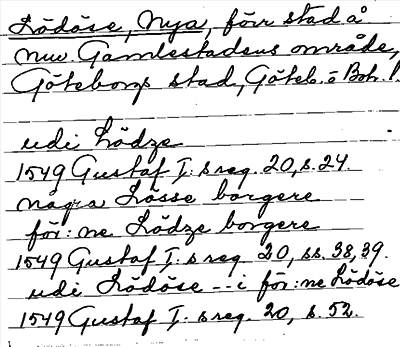 Lödöse, Nya, förr stad å
nuv. Gamlestadens område,
Göteborgs stad, Göteb. o Boh. l.
udi Lödze
1549 Gustaf I:s reg. 20, s. 24.
några Lösse borgere
för:ne Lödze borgere
1549 Gustaf I:s reg. 20, ss. 38, 39.
udi Lödöse -- i för:ne Lödöse
1549 Gustaf I:s reg. 20, s. 52.